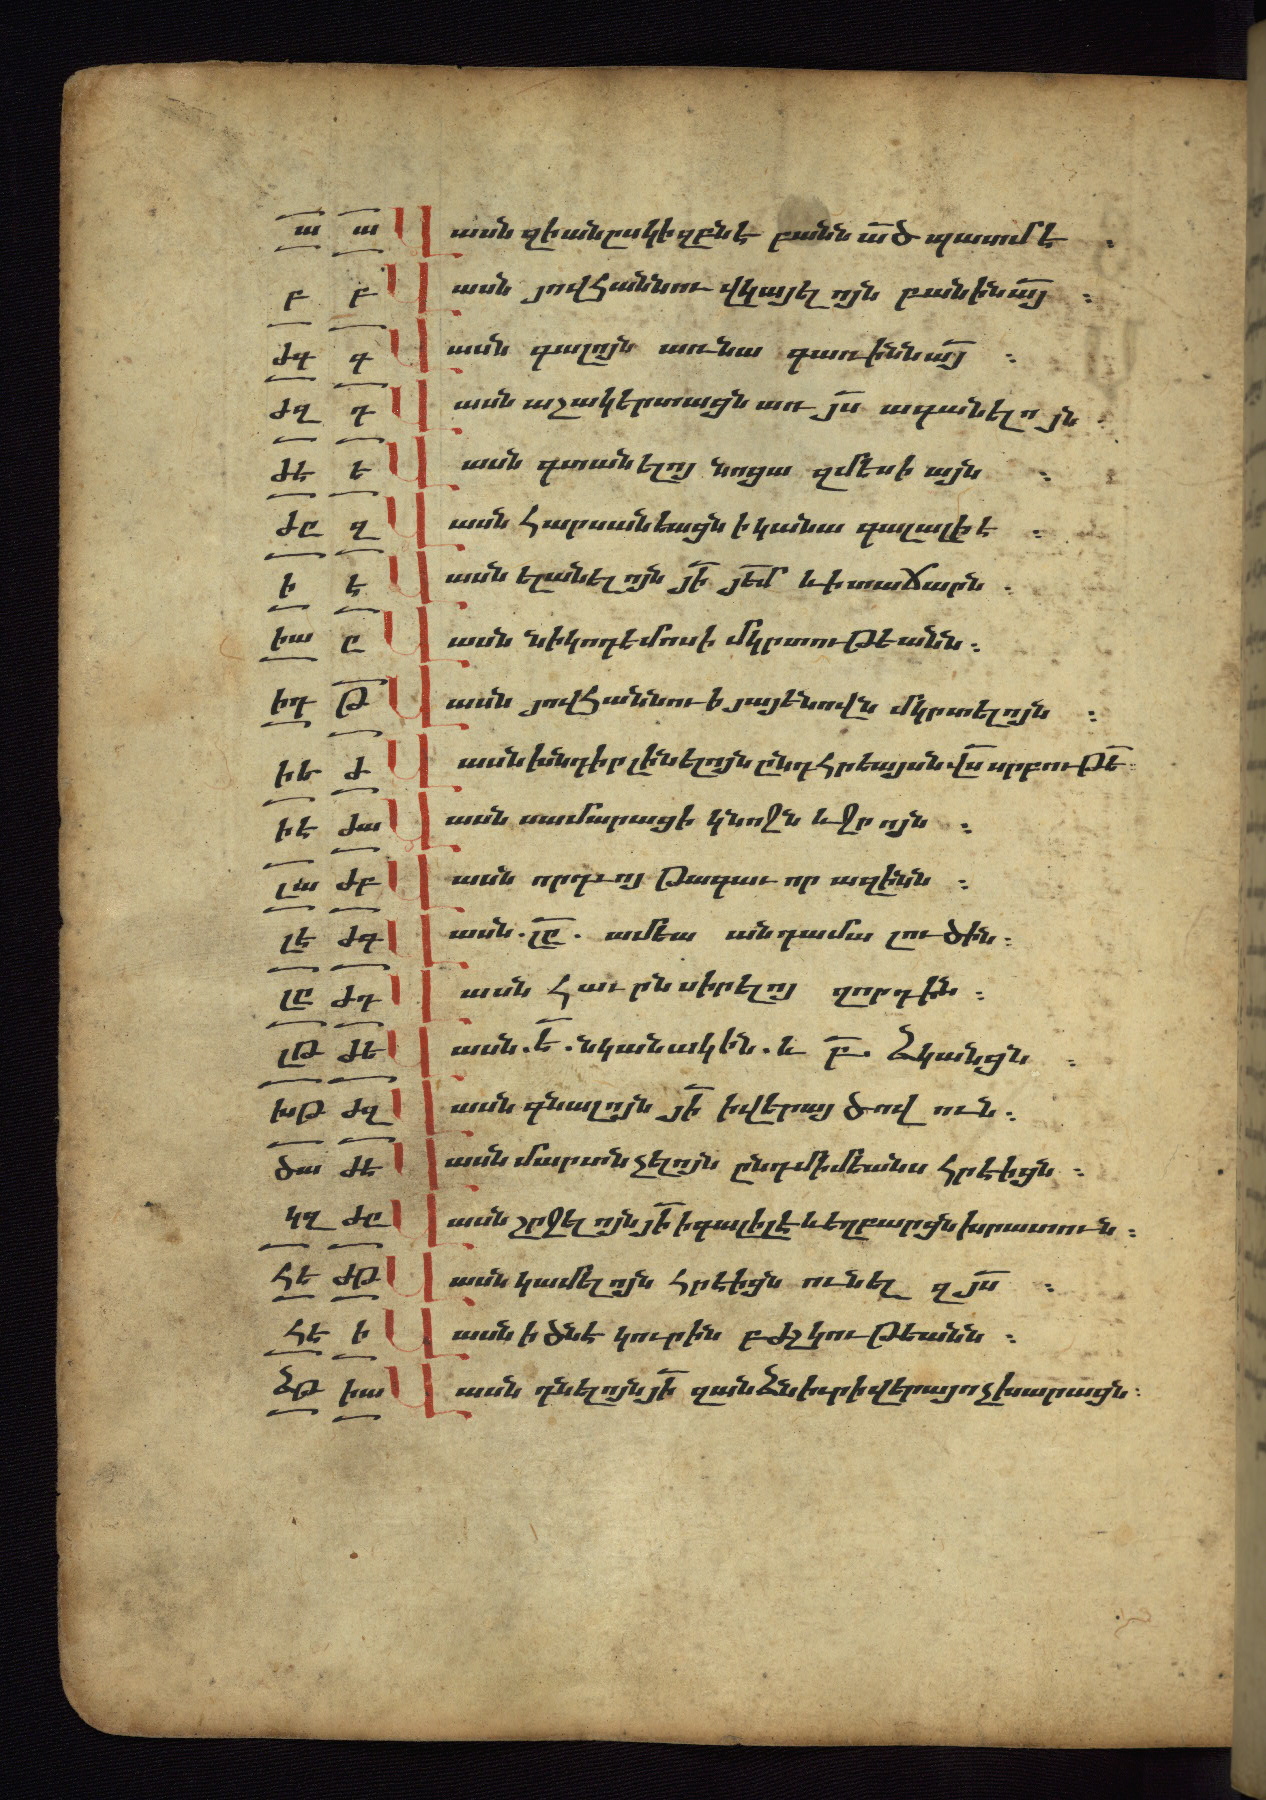 ա ա Վասն զի անըսկիզբն է բանն ած պատմէ :
բ բ Վասն յովհաննու վկայելոյն բանին այ :
ժգ գ Վասն գալոյն առ նա գառինն այ :
ժզ դ Վասն աշակերտացն առ յս ագանելոյն :
ժէ ե Վասն գտանելոյ նոցա զմեսի այն :
ժը զ Վասն հարսանեացն ի կանա գալալիէ :
ի է Վասն ելանելոյն յի յեմ և ի տաճարն :
իա ը Վասն նիկոդէմոսի մկրտութեանն :
իդ թ Վասն յովհաննու ի յայենովն մկրտելոյն :
իե ժ Վասն խնդիր լինելոյն ընդ հրեայսն վս սրբութե :
իէ ժա Վասն սամարացի կնոջն և ջրոյն :
լա ժբ Վասն որդւոյ թագաւորազինն :
լէ ժգ Վասն . լը . ամեա անդամա լուծին :
լը ժդ Վասն հաւրն սիրելոյ զորդին :
լթ ժե Վասն . ե . նկանակին . և բ . ձկանցն :
խթ ժզ Վասն գնալոյն յի ի վերայ ծովուն :
ծա ժե Վասն մարտնչելոյն ընդ միմեանս հրէիցն :
կզ ժը Վասն շրջելոյն յի ի գալիլէ և եղբարցն խրատուն :
հե ժթ Վասն կամելոյն հրէիցն ունել զյս :
հէ ի Վասն ի ծնէ կուրին բժշկութեանն :
ձթ իա Վասն դնելոյն յի զանձն իւր ի վերայ ոչխարացն :